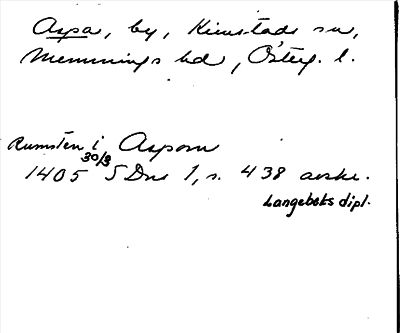 Aspa, by, Kimstads sn,
Memmings hd, Österg. l.
Rumsten i Asporn
1405 30/3 SDns 1, s. 438 avskr.
Langebeks dipl.